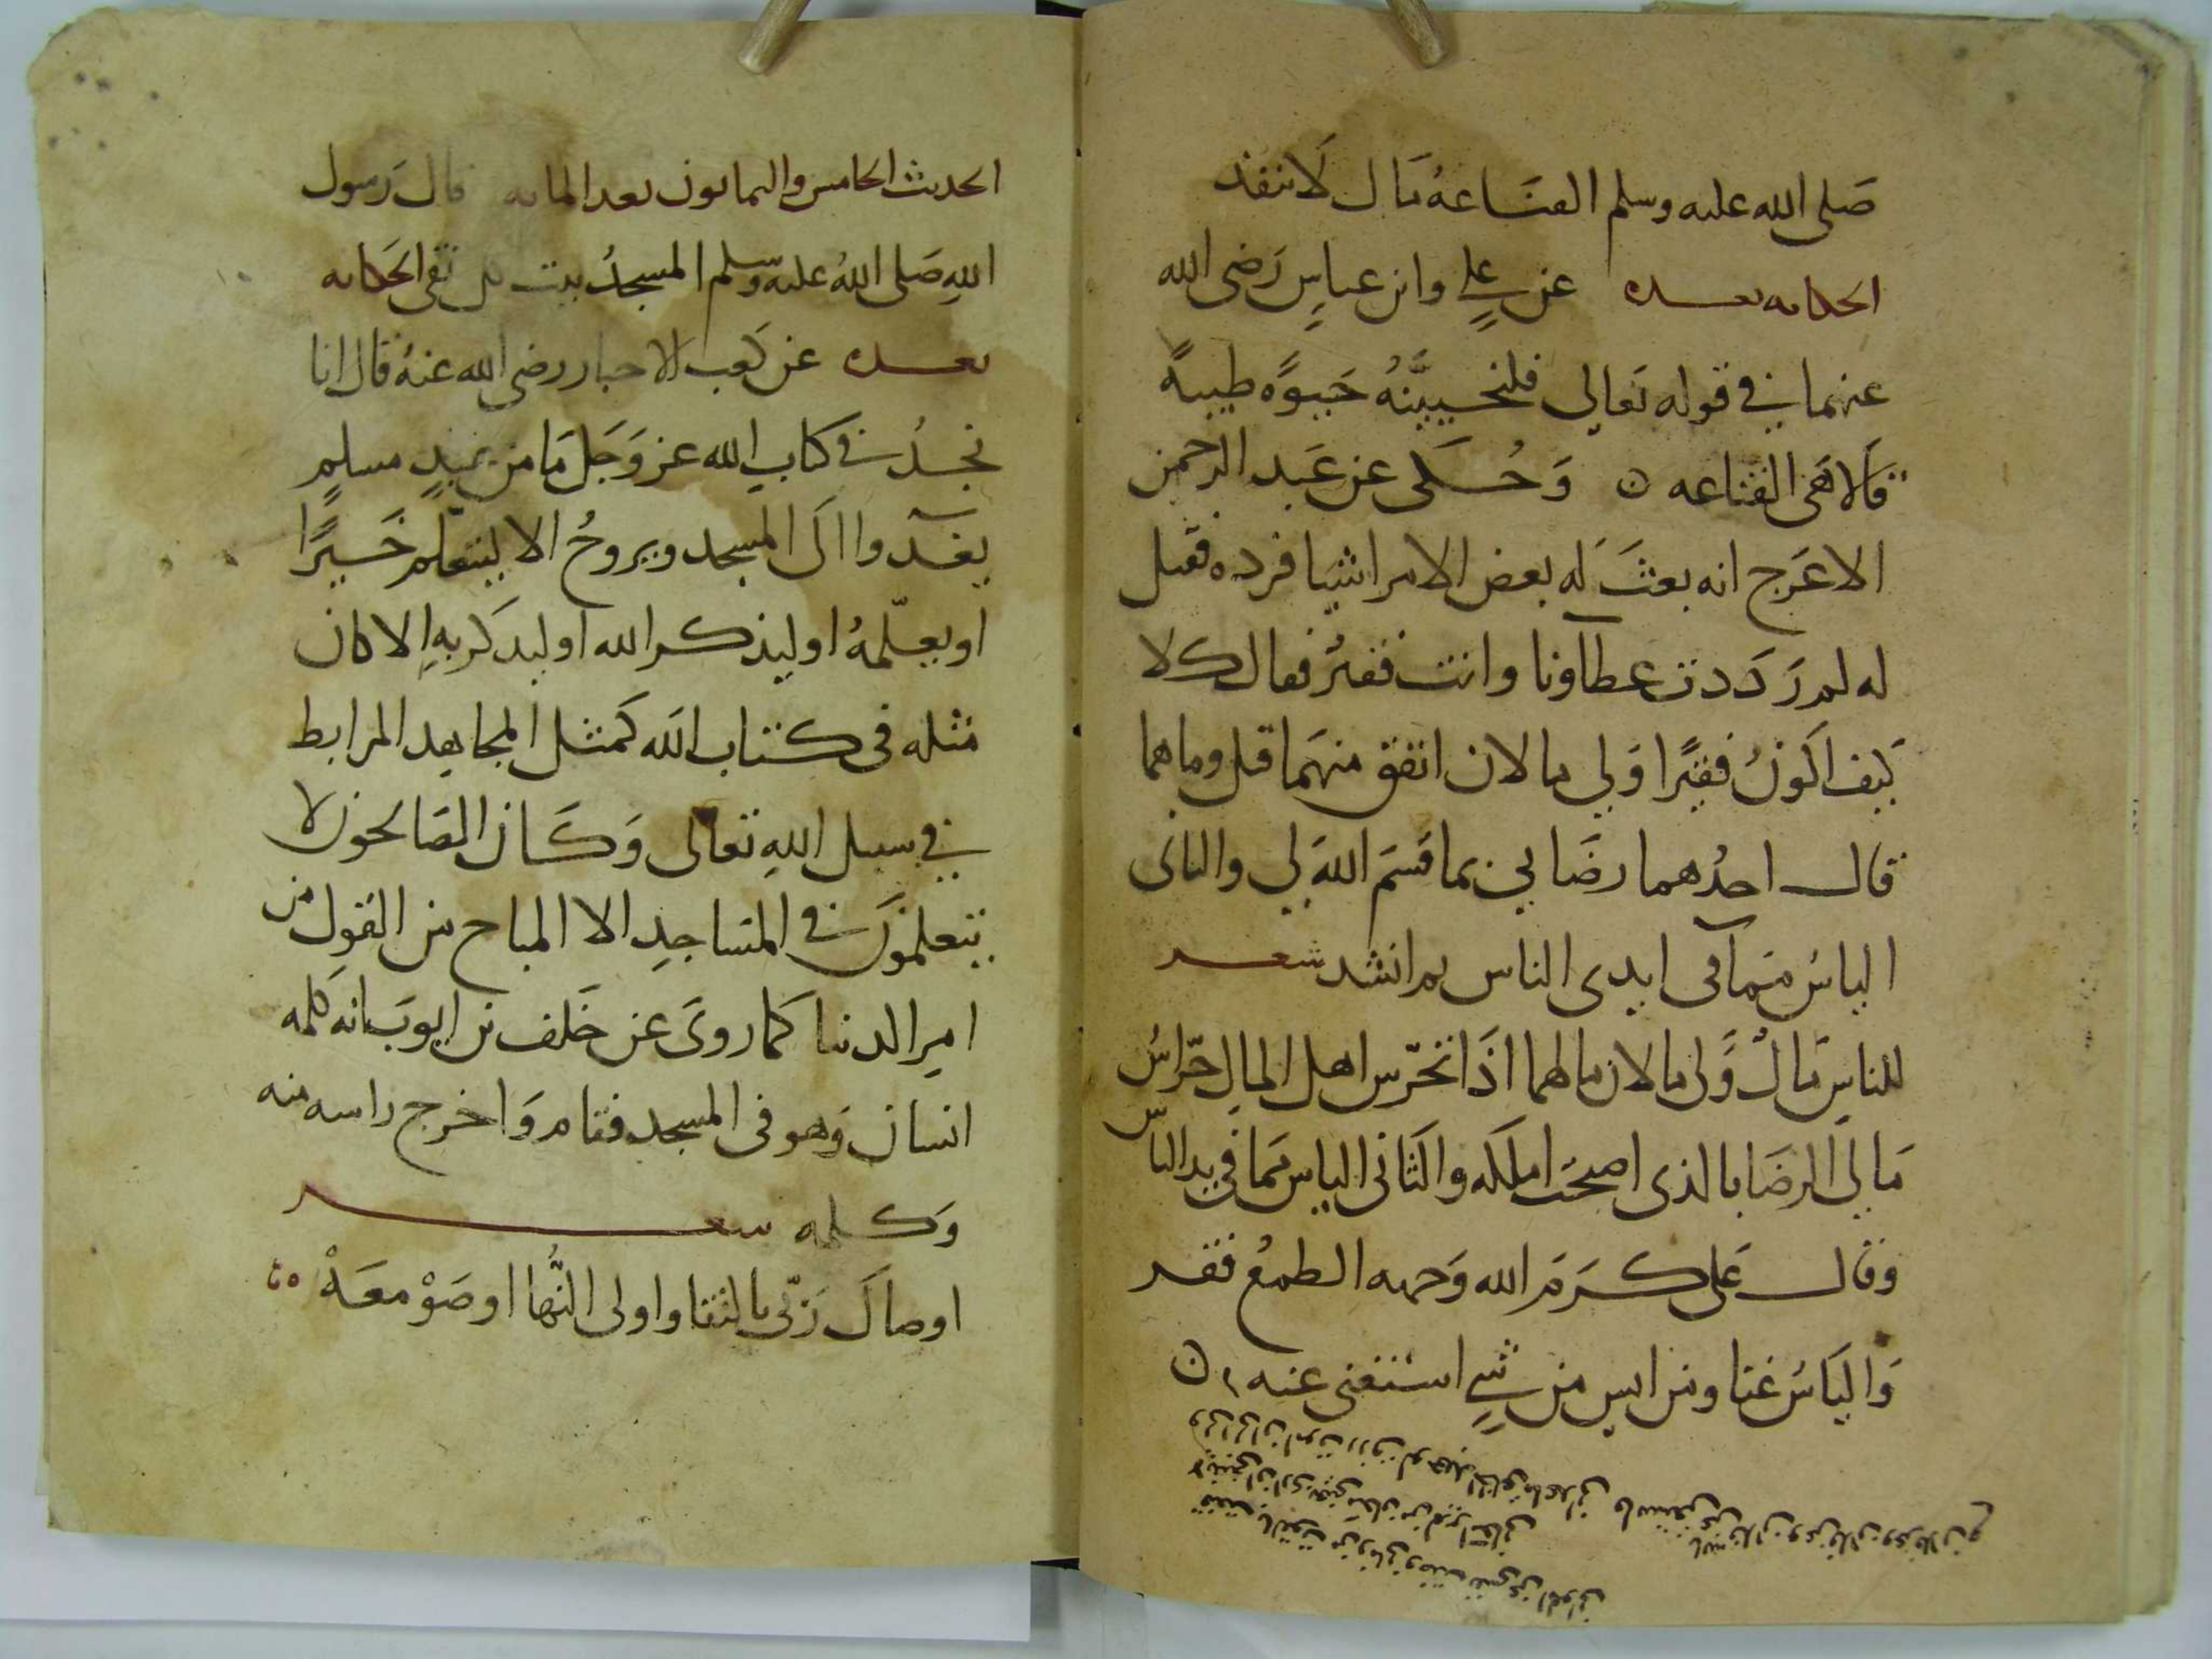 صَلى الله عليه وسلم القنَاعة مَال لَا ينفذ
الحكاية بعده عن عليٍ وابن عباسٍ رَضى الله
عنهما في قوله تعالى فلنحيينّهُ حَيوةً طيبةً
قالا هى القناعه ن وَحُكى عن عَبد الرحمن
الاعَرج انه بعثَ لَه بعض الامرا شيا فرده فقيل
له لم رَدَدت عطاونا وانت فقير فقال كلا
كيف اكَونُ فقيرًا وَلي مالان انفق منهَما قيل وماهما
قال احدُهما رضَايي بما قسَم اللهَ لي والثانى
الياسُ ممَا فى ايدى الناس ثم انشد شعر
للناسِ مَالٌ وَلى مالان مالهما اذَا تحرّس اهل المالِ حرّاسُ
مَالي الرضَا بالذى اصبحَت املكه والثَانى الياس مَما فى يد الناس
وقال عَلى كرَمَ الله وَجهه الطمعُ فقر
وَاليَاسُ غنا ومن ايس من شىٍ استغنى عنه ن
الحديث الخامس والثمانون بعد المايه قال رَسول
اللهِ صَلى اللهُ عليه وسلم المسجدُ بيت كل تقى الحكايه
بعده عن كعب الاحبار رضى الله عنهُ قال انا
نجدُ في كتابِ الله عز وَجَل مَا من عبدٍ مسلمٍ
يغدوا الَى المسجد ويروحُ الا ليتعلم خَيرًا
او يعلّمهُ او ليذكر الله او ليذكَر بهِ الا كان
مثله فى كتاب الله كَمثل المجاهد المرابط
في سبيل اللهِ تعالى وَكَان الصَالحون لا
يتعلمونَ في المسَاجدِ الا المباح من القولِ من
امرِ الدنيا كما روىَ عن خَلف بن ايوبَ انه كلمه
انسان وَهو فى المسجد فقام وَاخرج راسه منه
وَكلمه شعر
اوصاكَ رَبّى بالتقا واولى النُّها اوصَوْ معَهْ